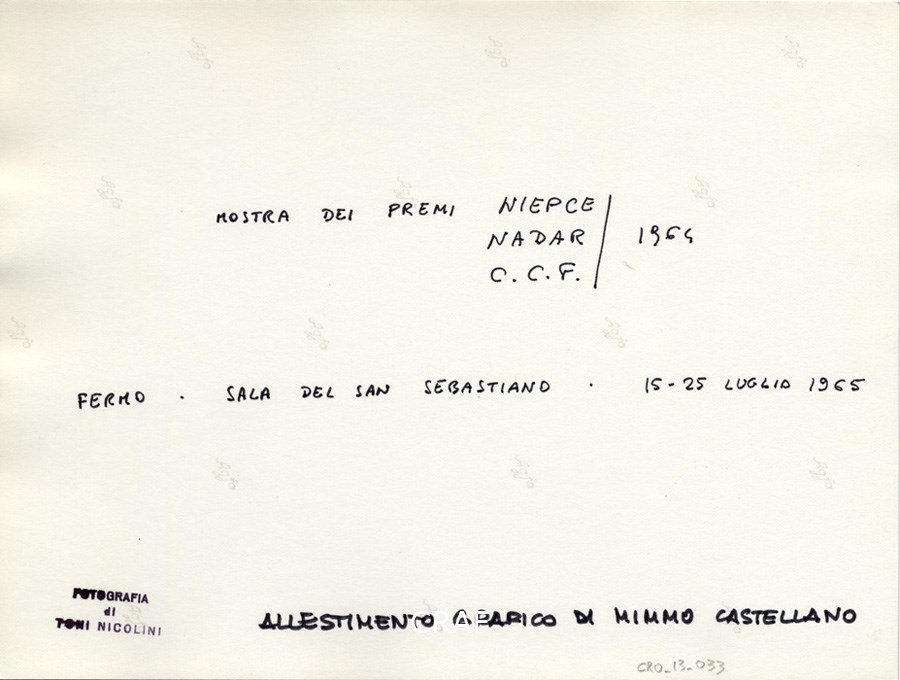 MOSTRA DEI PREMI NIEPCE
NADAR
C.C.F.
1964
FERMO · SALA DEL SAN SEBASTIANO · 15-25 LUGLIO 1965
FOTOGRAFIA
di
TONI NICOLINI
ALLESTIMENTO GRAFICO DI MIMMO CASTELLANO
CRAF
CRO_13_033